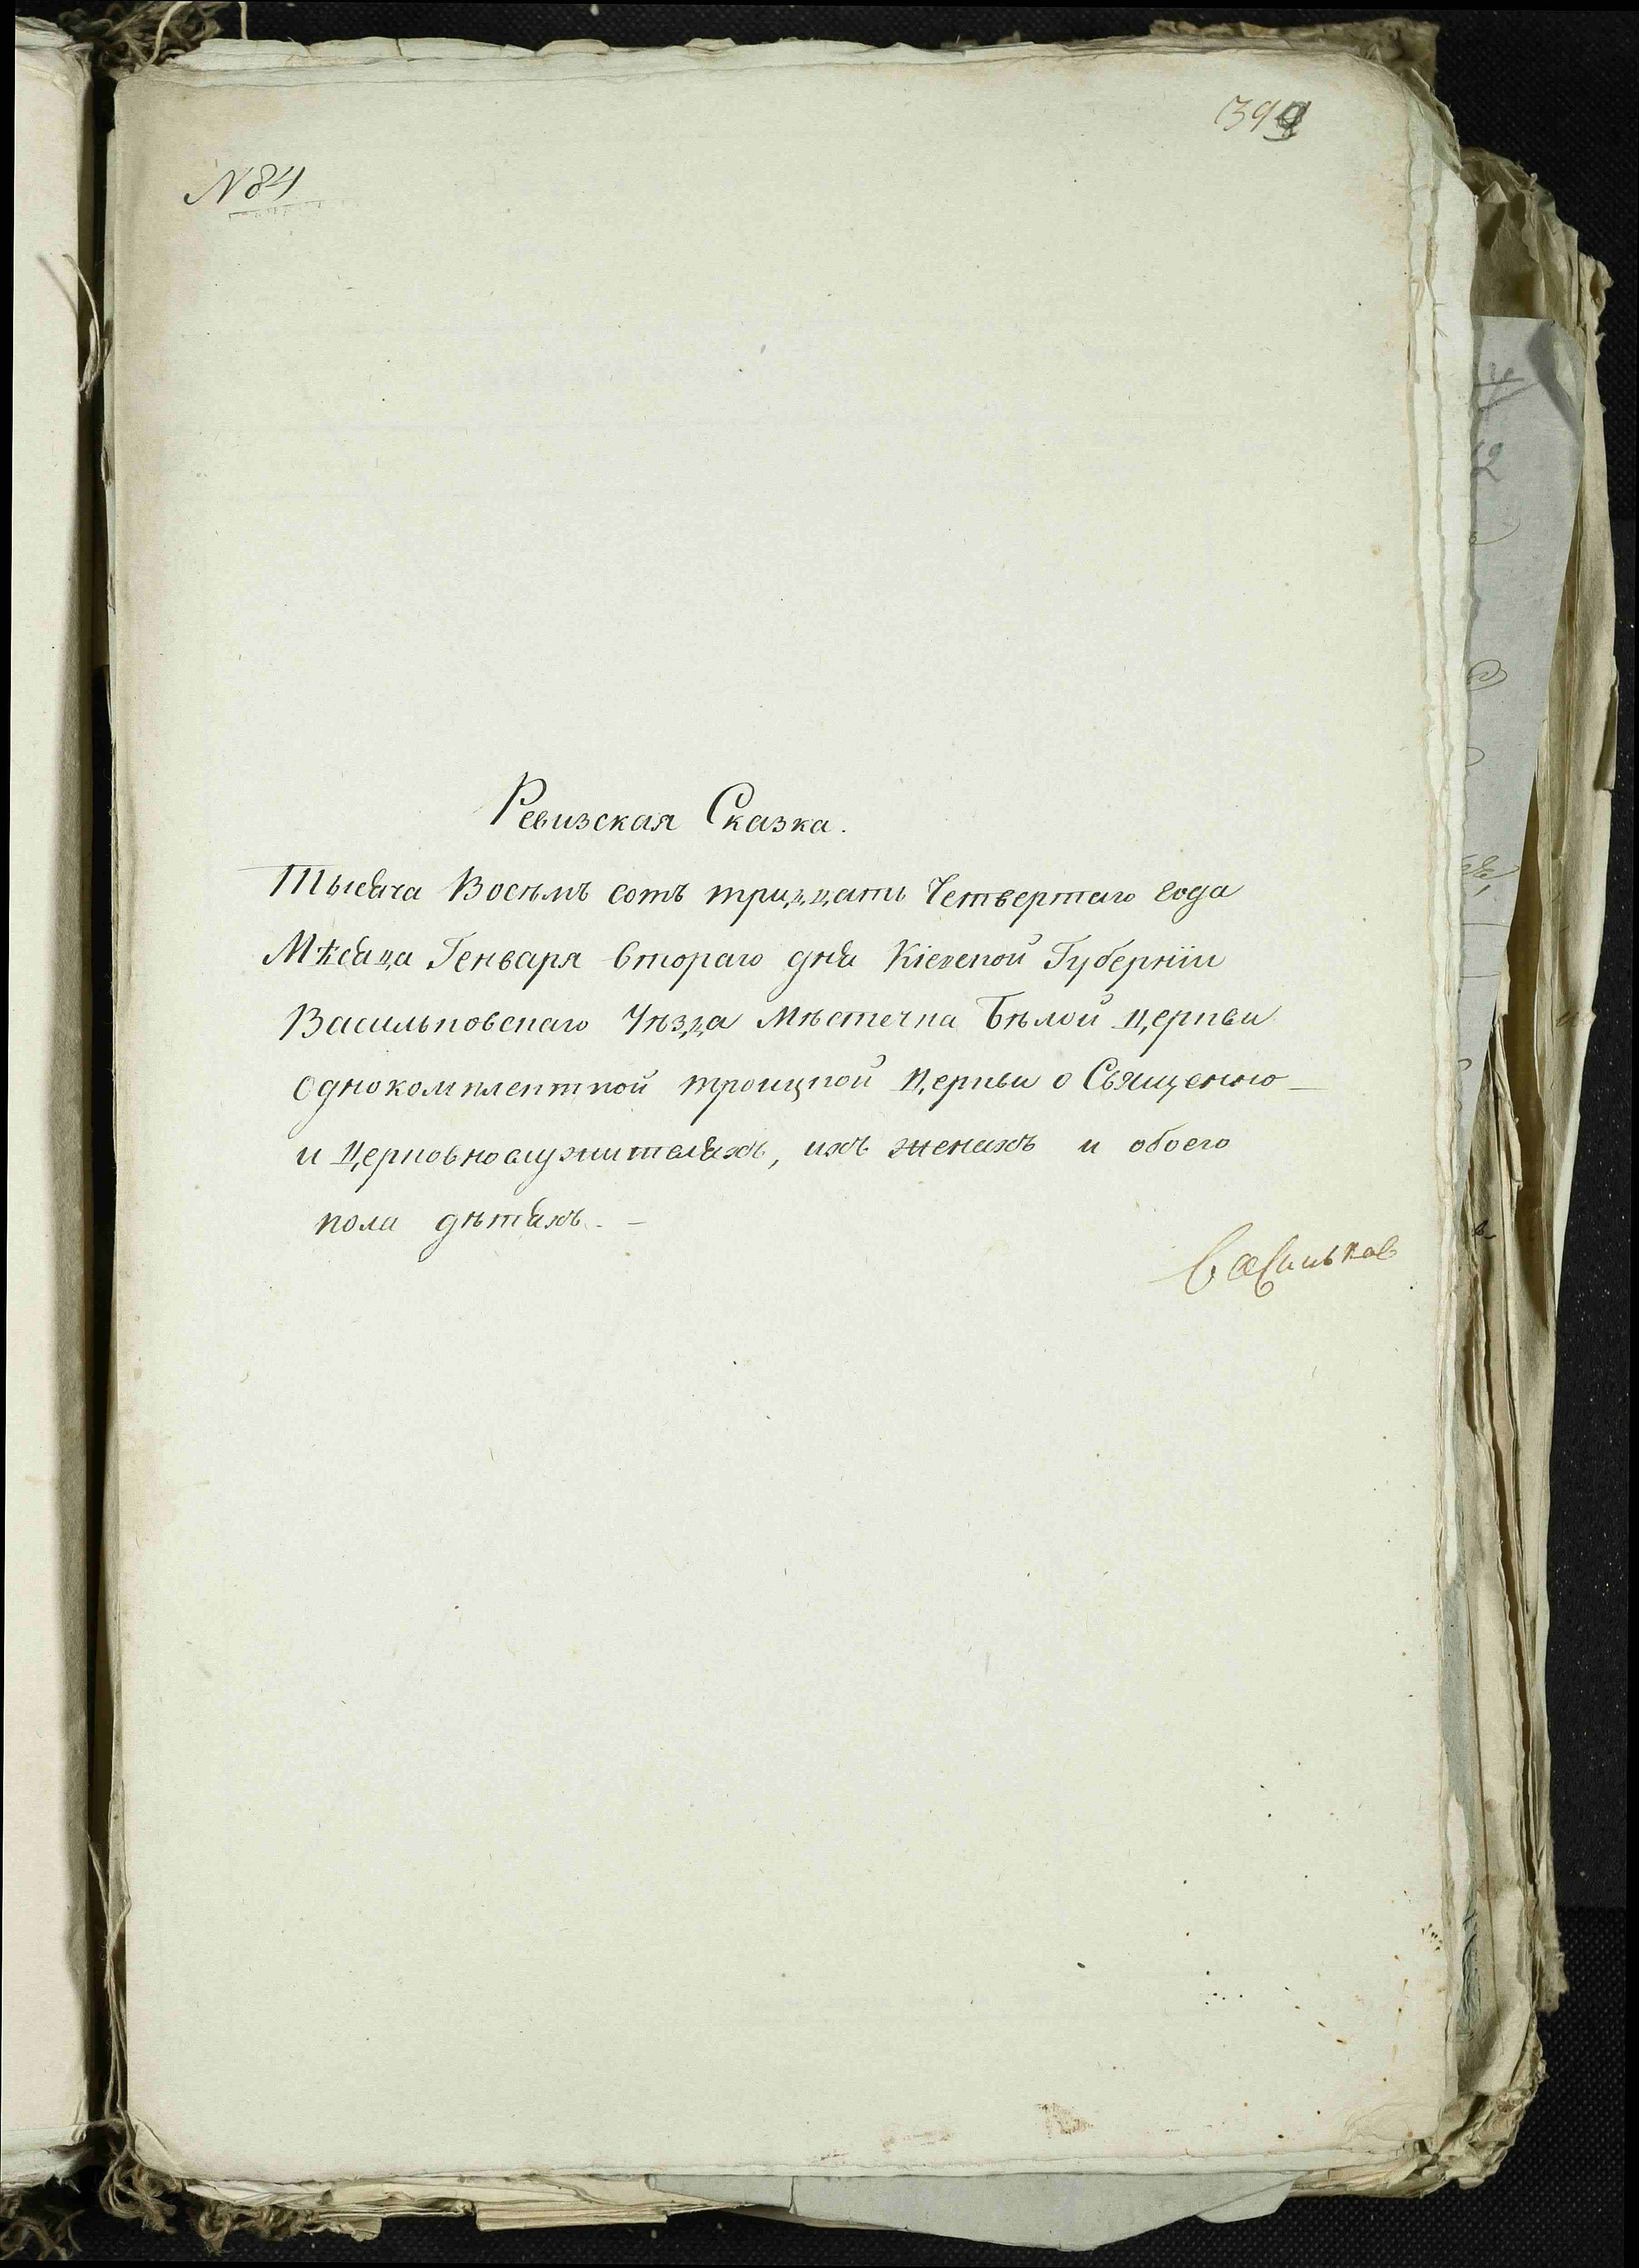 399
N 84
Ревизская Сказка.
Тысяча Восѣмь сотъ тридцать Четвертаго года
Мѣсяца Генваря втораго дня Кіевской Губерніи
Васильковскаго Уѣзда Мѣстечка Бѣлой Церкви
Однокомплектной троицкой Церкви о Священно-
и Церковнослужителяхъ, ихъ женахъ и обоего
пола дѣтяхъ. -
Васильков